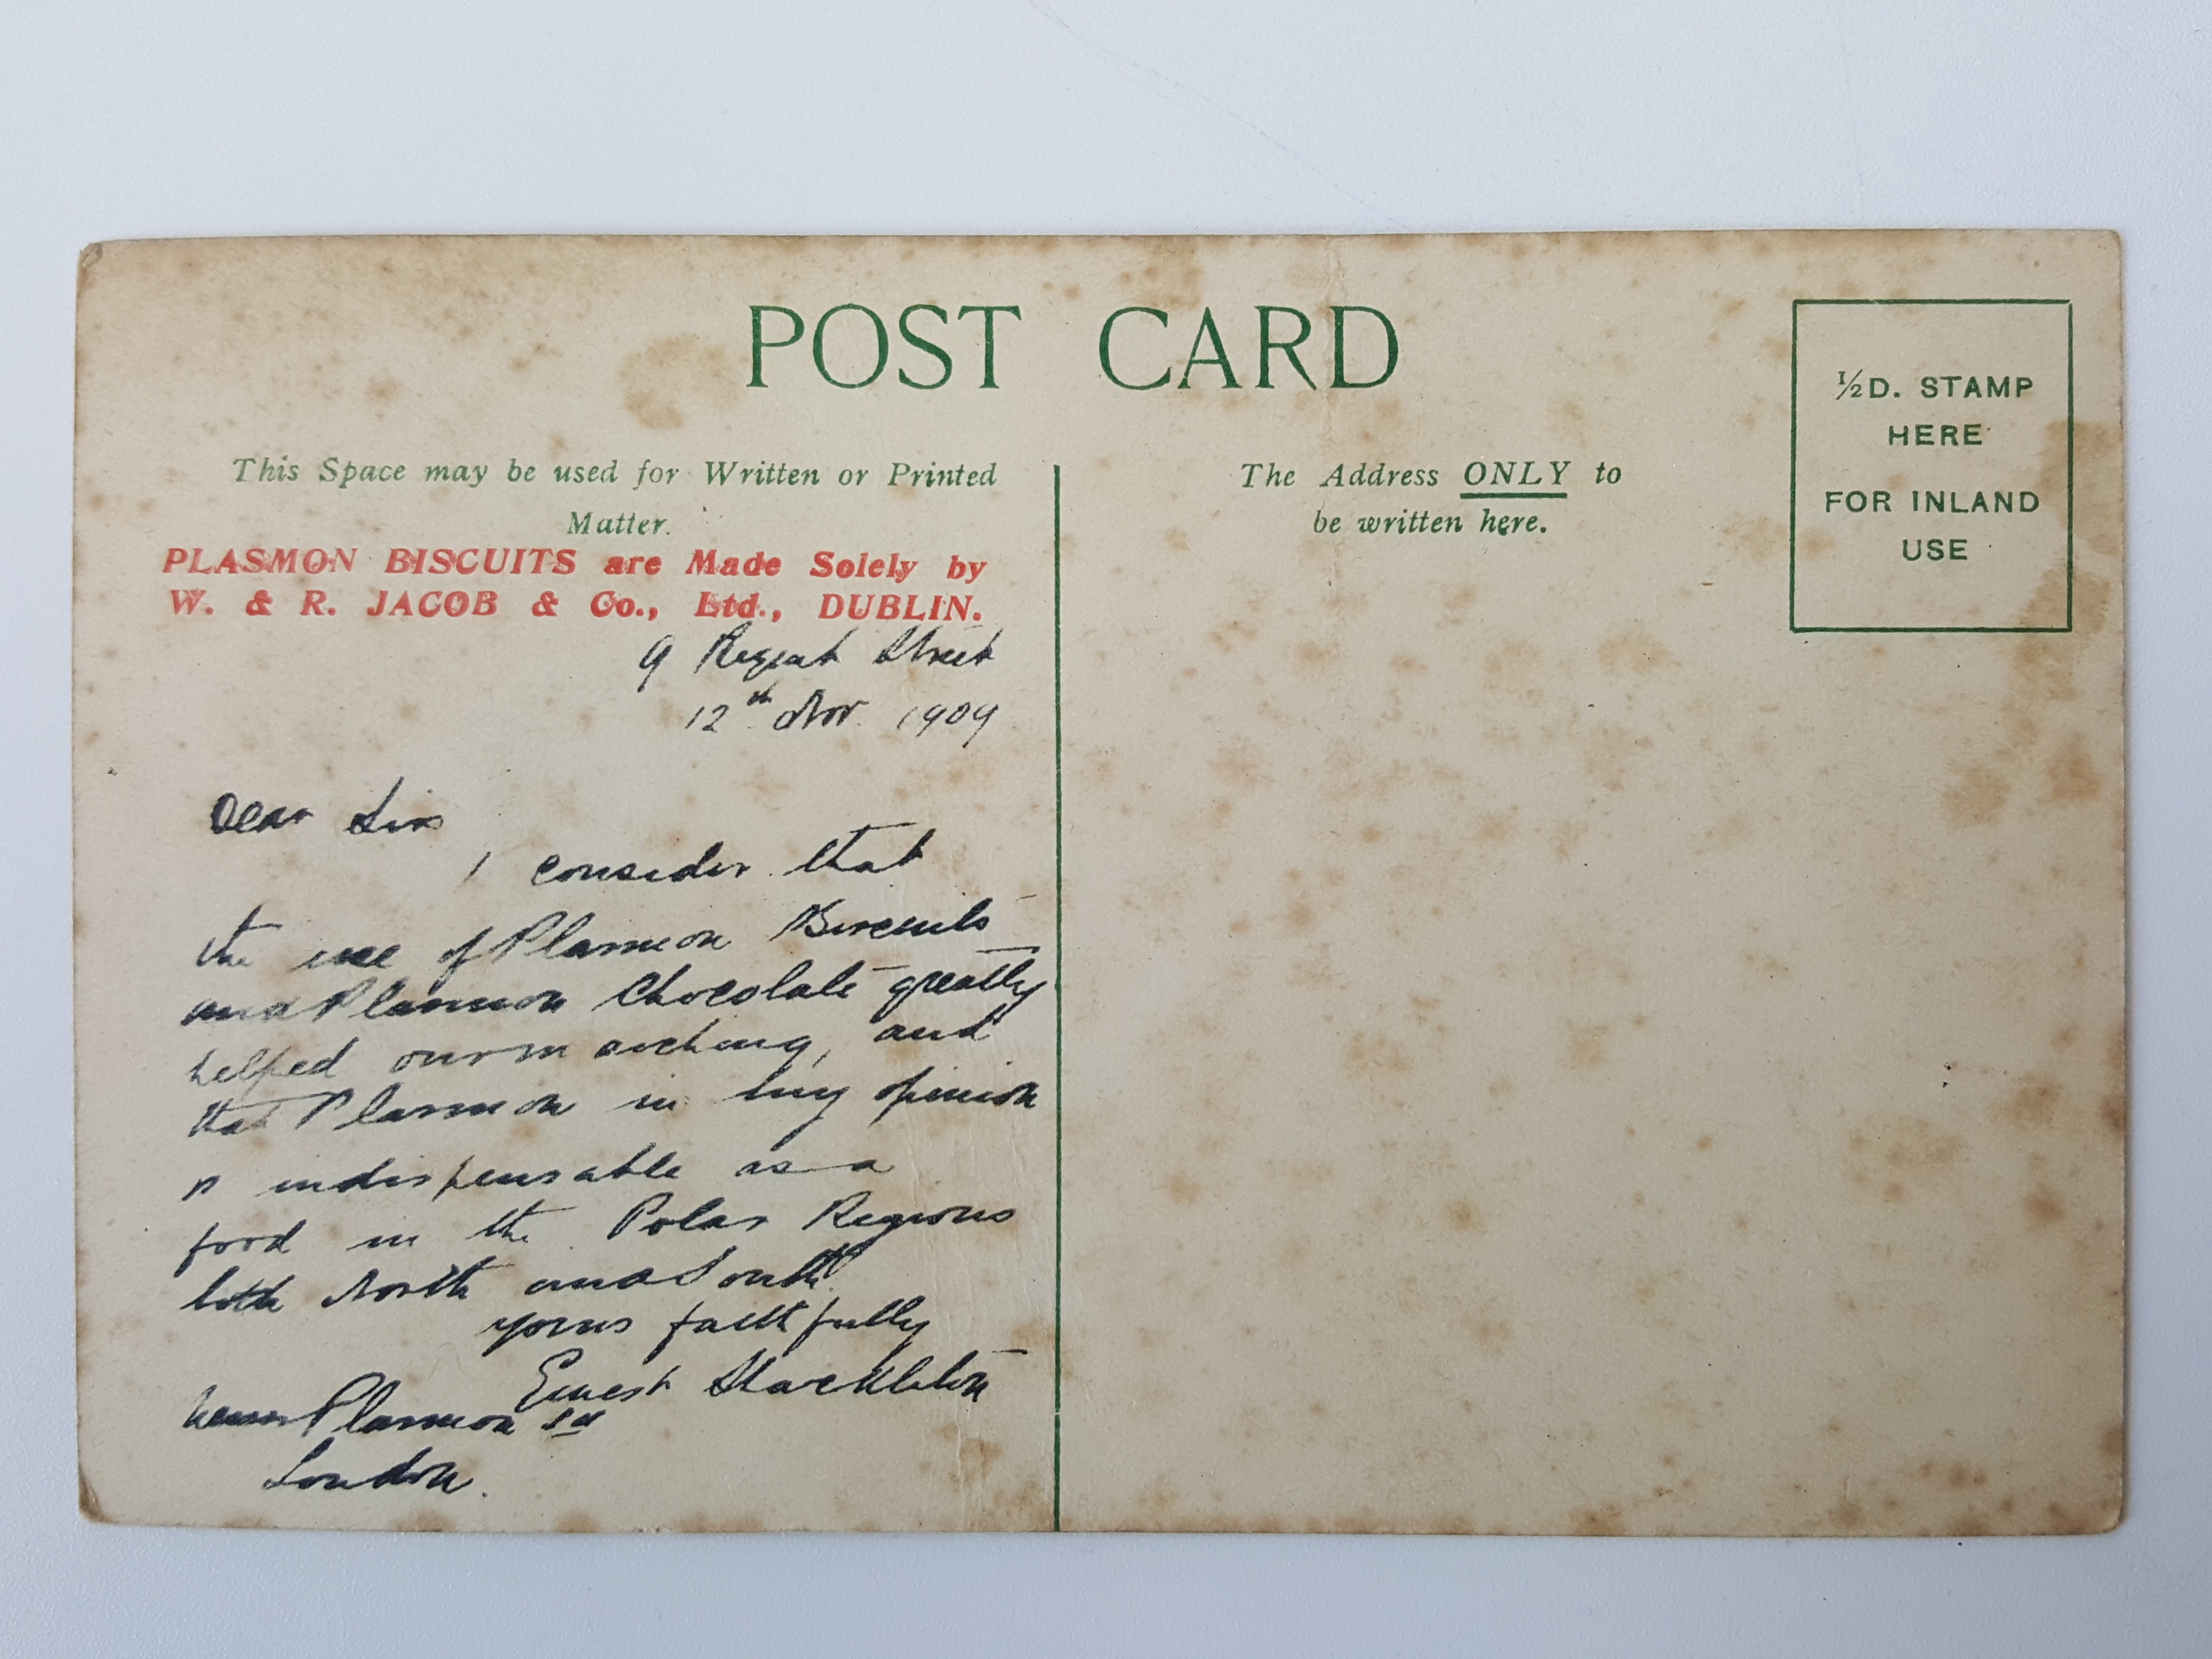 POST CARD
This Space may be used for Written or Printed
Matter.
PLASMON BISCUITS are Made Solely by
W. & R. JACOB & Co., Ltd., DUBLIN.
9 Regent Street
12th Nov. 1909
Dear Sirs
I consider that
the use of Plasmon Biscuits
and Plasmon Chocolate greatly
helped our marching, and
that Plasmon in my opinion
is indispensable as a
food in the Polar Regions
both North and South.
yours faithfully
Ernest Shackleton
Messrs Plasmon Ld
London.
The Address ONLY to
be written here.
½D. STAMP
HERE
FOR INLAND
USE